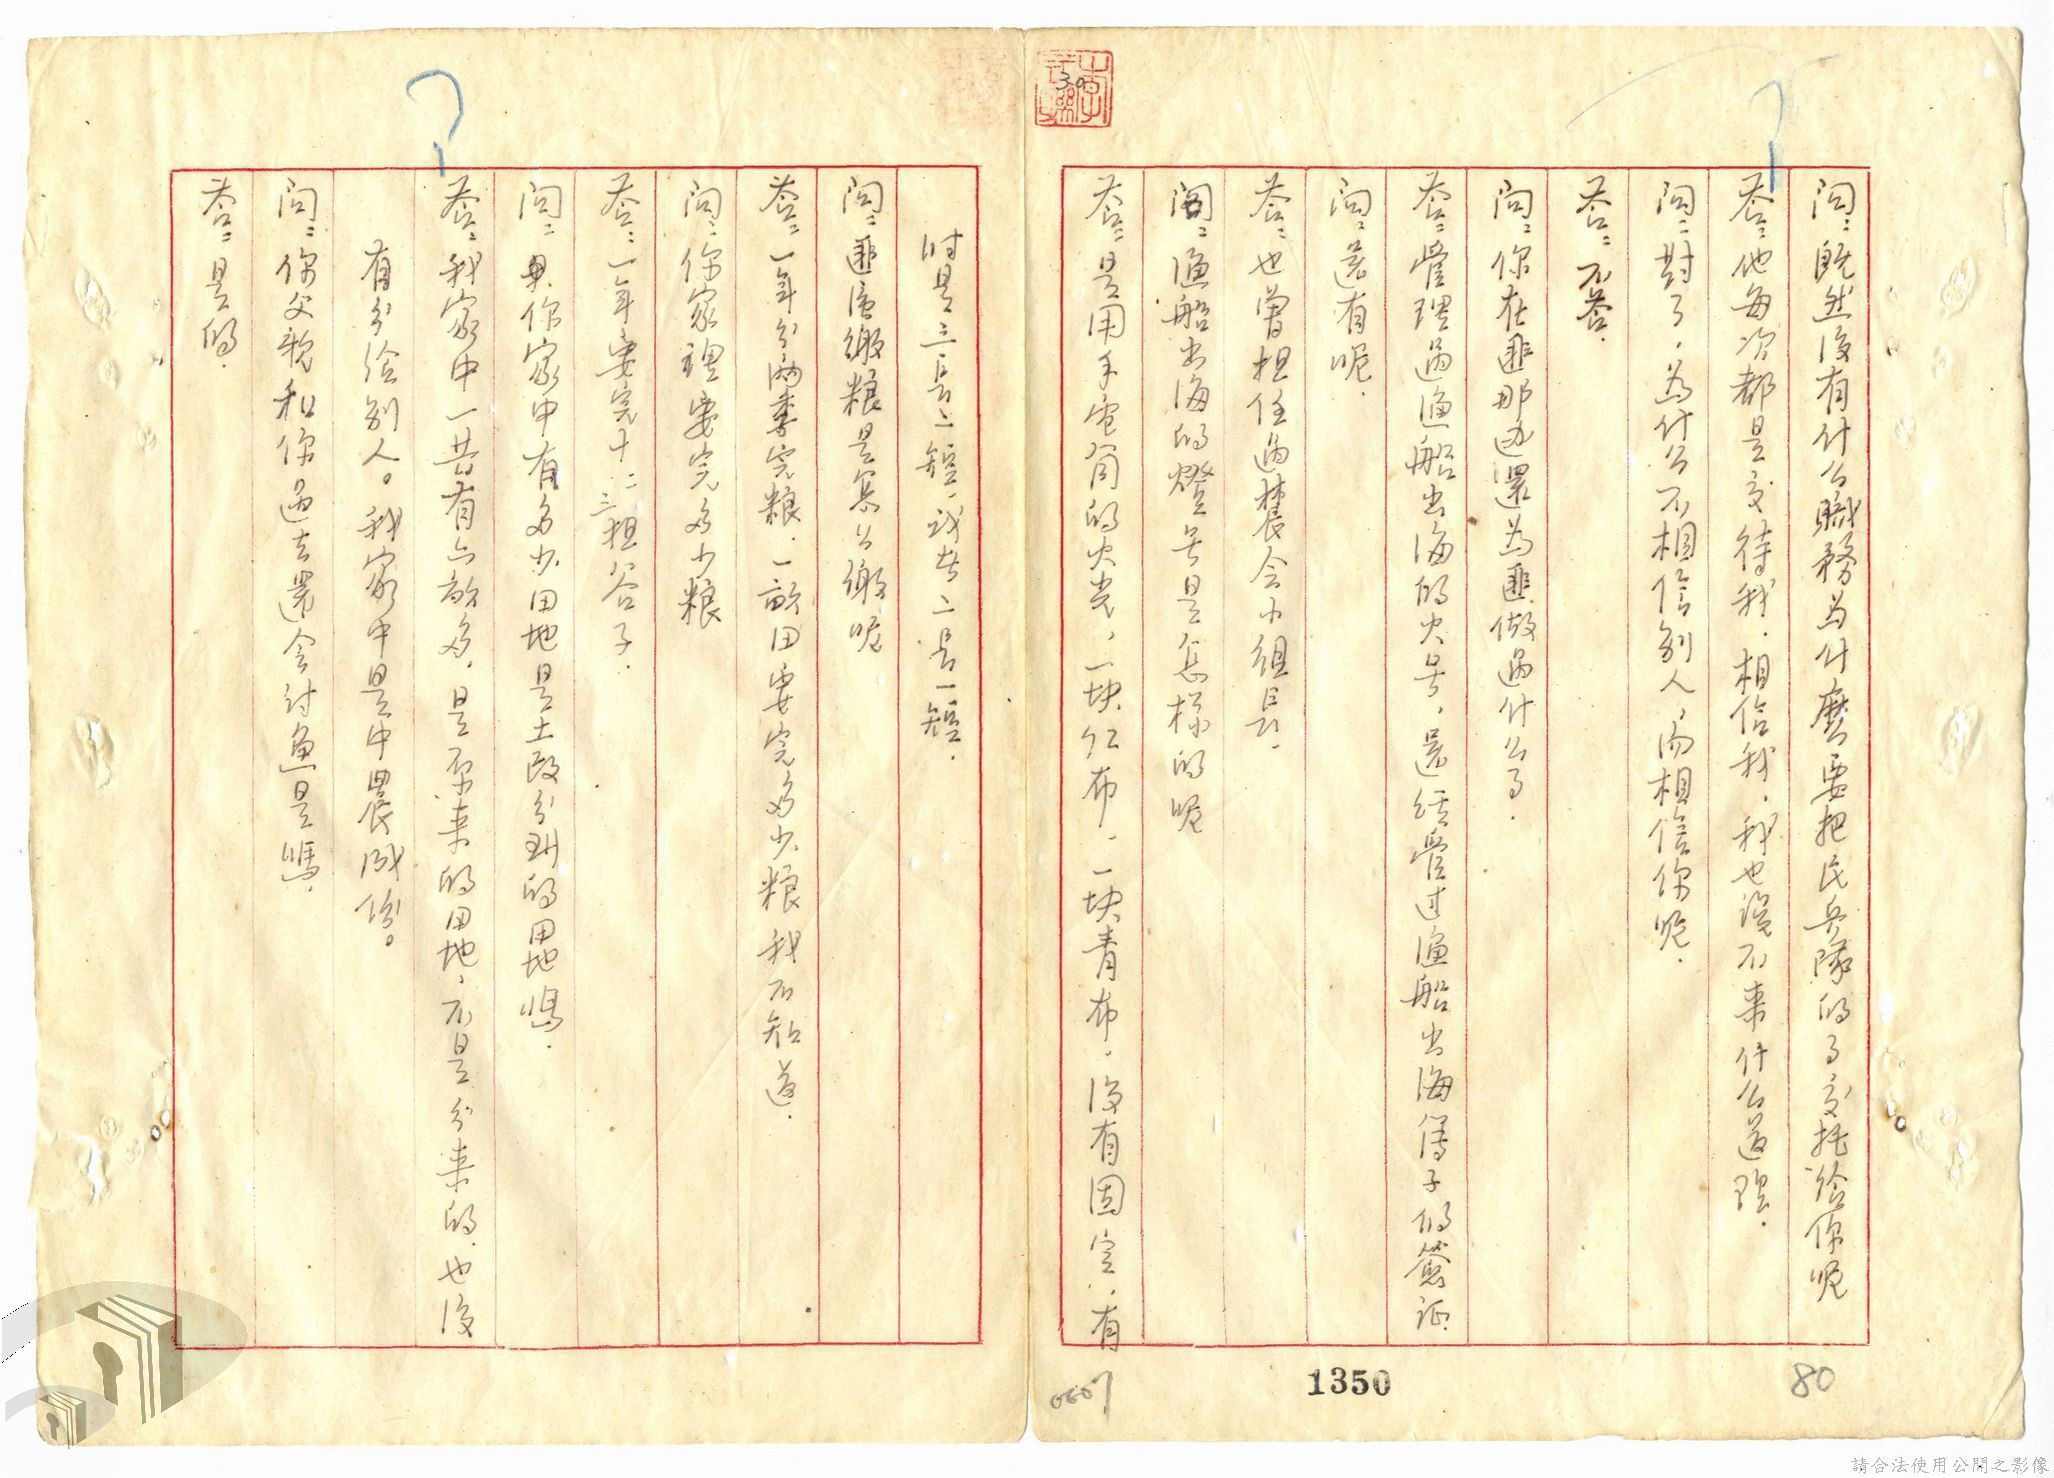 問：既然沒有什么職務为什麼要把民兵隊的事交托給你呢
答：他每次都是交待我．相信我．我也説不来什么道理．
問：對了，為什么不相信别人，而相信你呢．
答：不答．
問：你在匪那边還為匪做過什么事．
答：管理過漁船出海的火号，還经管过漁船出海簿子的簽証．
問：還有呢．
答：也曾担任過農会小组長．
問：漁船出海的燈号是怎樣的呢
答：是用手电筒的火光，一块红布．一块青布．沒有固定．有
時是三長二短，或者二長一短．
問：匪區繳粮是怎么繳呢
答：一年分兩季完粮．一畝田要完多少粮我不知道．
問：你家裡要完多少粮
答：一年要完十二三担谷子．
問：你家中有多少田地是土改分到的田地嗎．
答：我家中一共有六畝多．是原来的田地，不是分来的．也沒
有分给别人。我家中是中農成份。
問：你父親和你過去還会討魚是嗎．
答：是的．
30
1350
80
請合法使用公開之影像